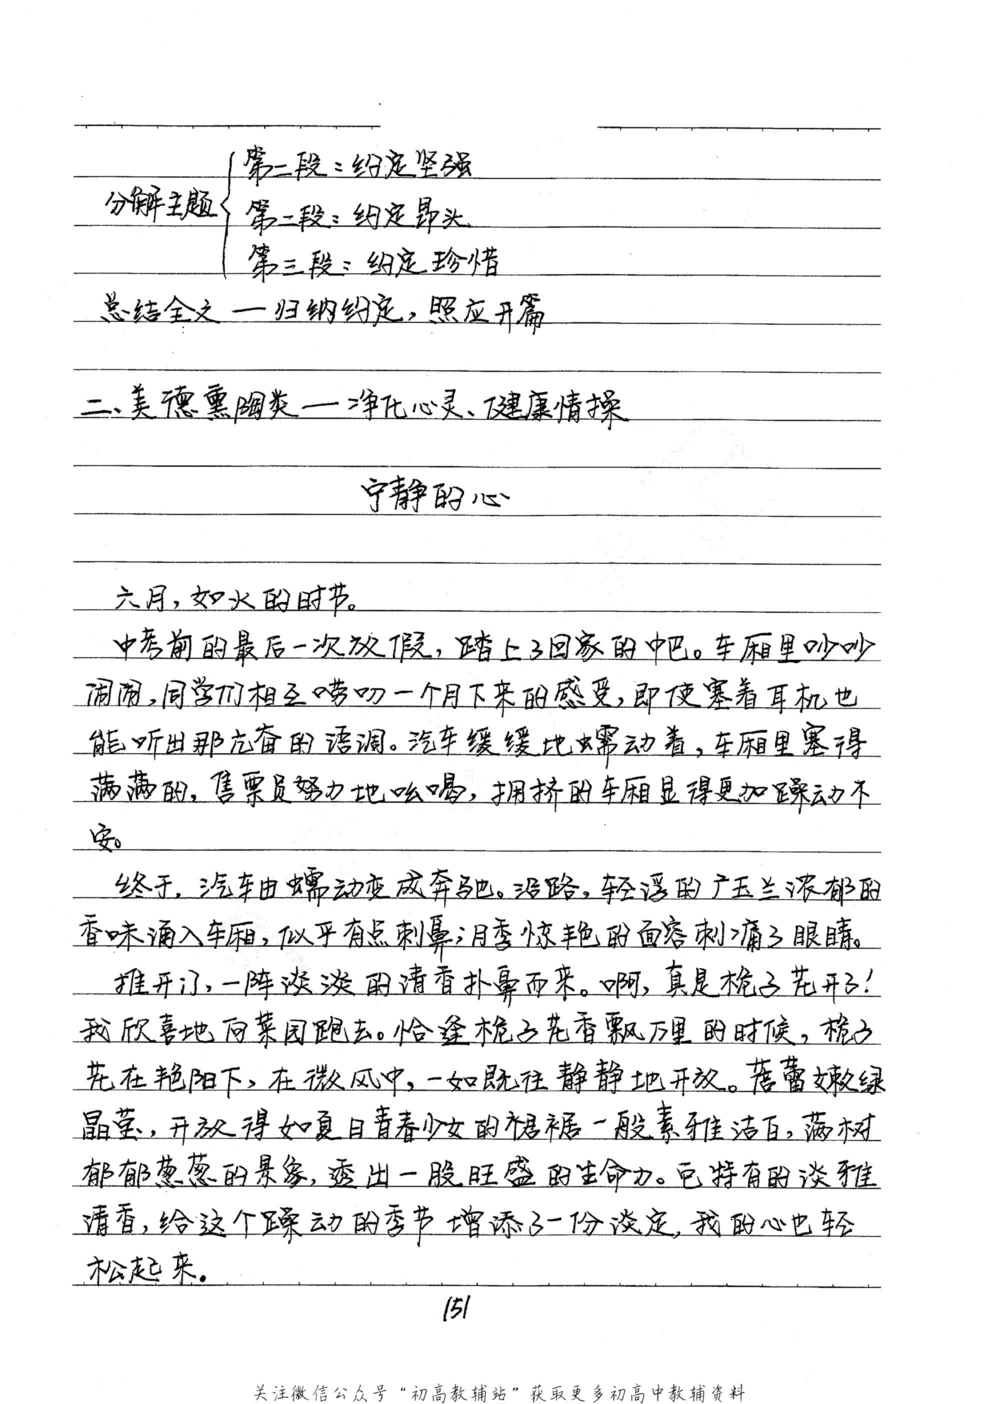 分解主题
第二段：约定坚强
第二段：约定昂头
第三段：约定珍惜
总结全文 — 归纳约定，照应开篇
二、美德熏陶类 — 净化心灵、健康情操
宁静的心
六月，如火的时节。
中考前的最后一次放假，踏上了回家的中巴。车厢里吵吵
闹闹，同学们相互唠叨一个月下来的感受，即使塞着耳机也
能听出那亢奋的语调。汽车缓缓地蠕动着，车厢里塞得
满满的，售票员努力地吆喝，拥挤的车厢显得更加躁动不
安。
终于，汽车由蠕动变成奔驰。沿路，轻浮的广玉兰浓郁的
香味涌入车厢，似乎有点刺鼻；月季惊艳的面容刺痛了眼睛。
推开门，一阵淡淡的清香扑鼻而来。啊，真是栀子花开了！
我欣喜地向菜园跑去。恰逢栀子花香飘万里的时候，栀子
花在艳阳下，在微风中，一如既往静静地开放。蓓蕾嫩绿
晶莹，开放得如夏日青春少女的裙裾一般素雅洁白，满树
郁郁葱葱的景象，透出一股旺盛的生命力。它特有的淡雅
清香，给这个躁动的季节增添了一份淡定，我的心也轻
松起来。
151
关注微信公众号“初高教辅站”获取更多初高中教辅资料